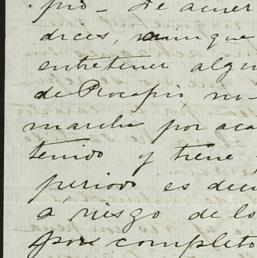 pio - De acuer
dices, aunque
entretener algu
de Procopio no-
marcha por aca
temido y tiene
periodo es deci
a riesgo de lo
por completo